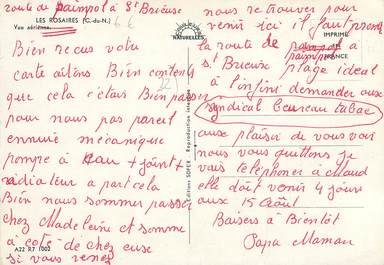 route de paimpol à St Brieuse
LES ROSAIRES (C.-du-N.)
Vue aérienne
Bien recus votre
carte aitens Bien contents
que cela c'etais Bien passer
pour nous pas pareil
ennuie mécanique
pompe à eau + joint +
radiateur a part cela
Bien nous sommes passer
chez Madeleine et somme
à coté de chez eux
si vous venez
A22 R7 1002
NATURELLES
Editions SOFER - Reproduction
IMPRIMÉ
FRANCE
nous retrouver pour
venir ici il faut prendre
la route de paimpol a
St Brieuse plage ideal
à l'infini demander aux
syndical Beureau tabac
aux plaisir de vous voir
nous vous quittons je
vais téléphoner à Maud
elle doit venir 4 jours
aux 15 Aout
Baisers à Bientôt
Papa Maman